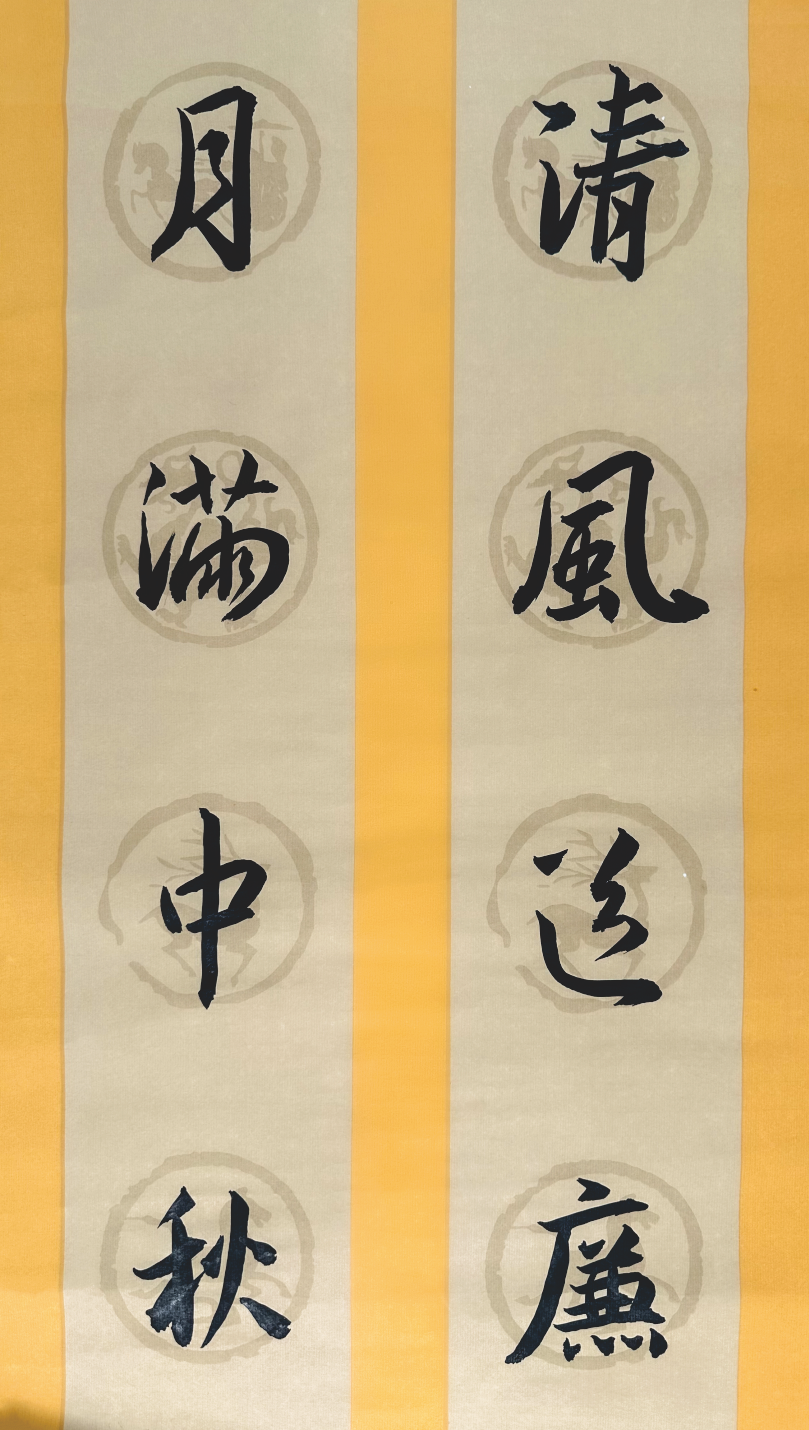 清風送廉
月滿中秋